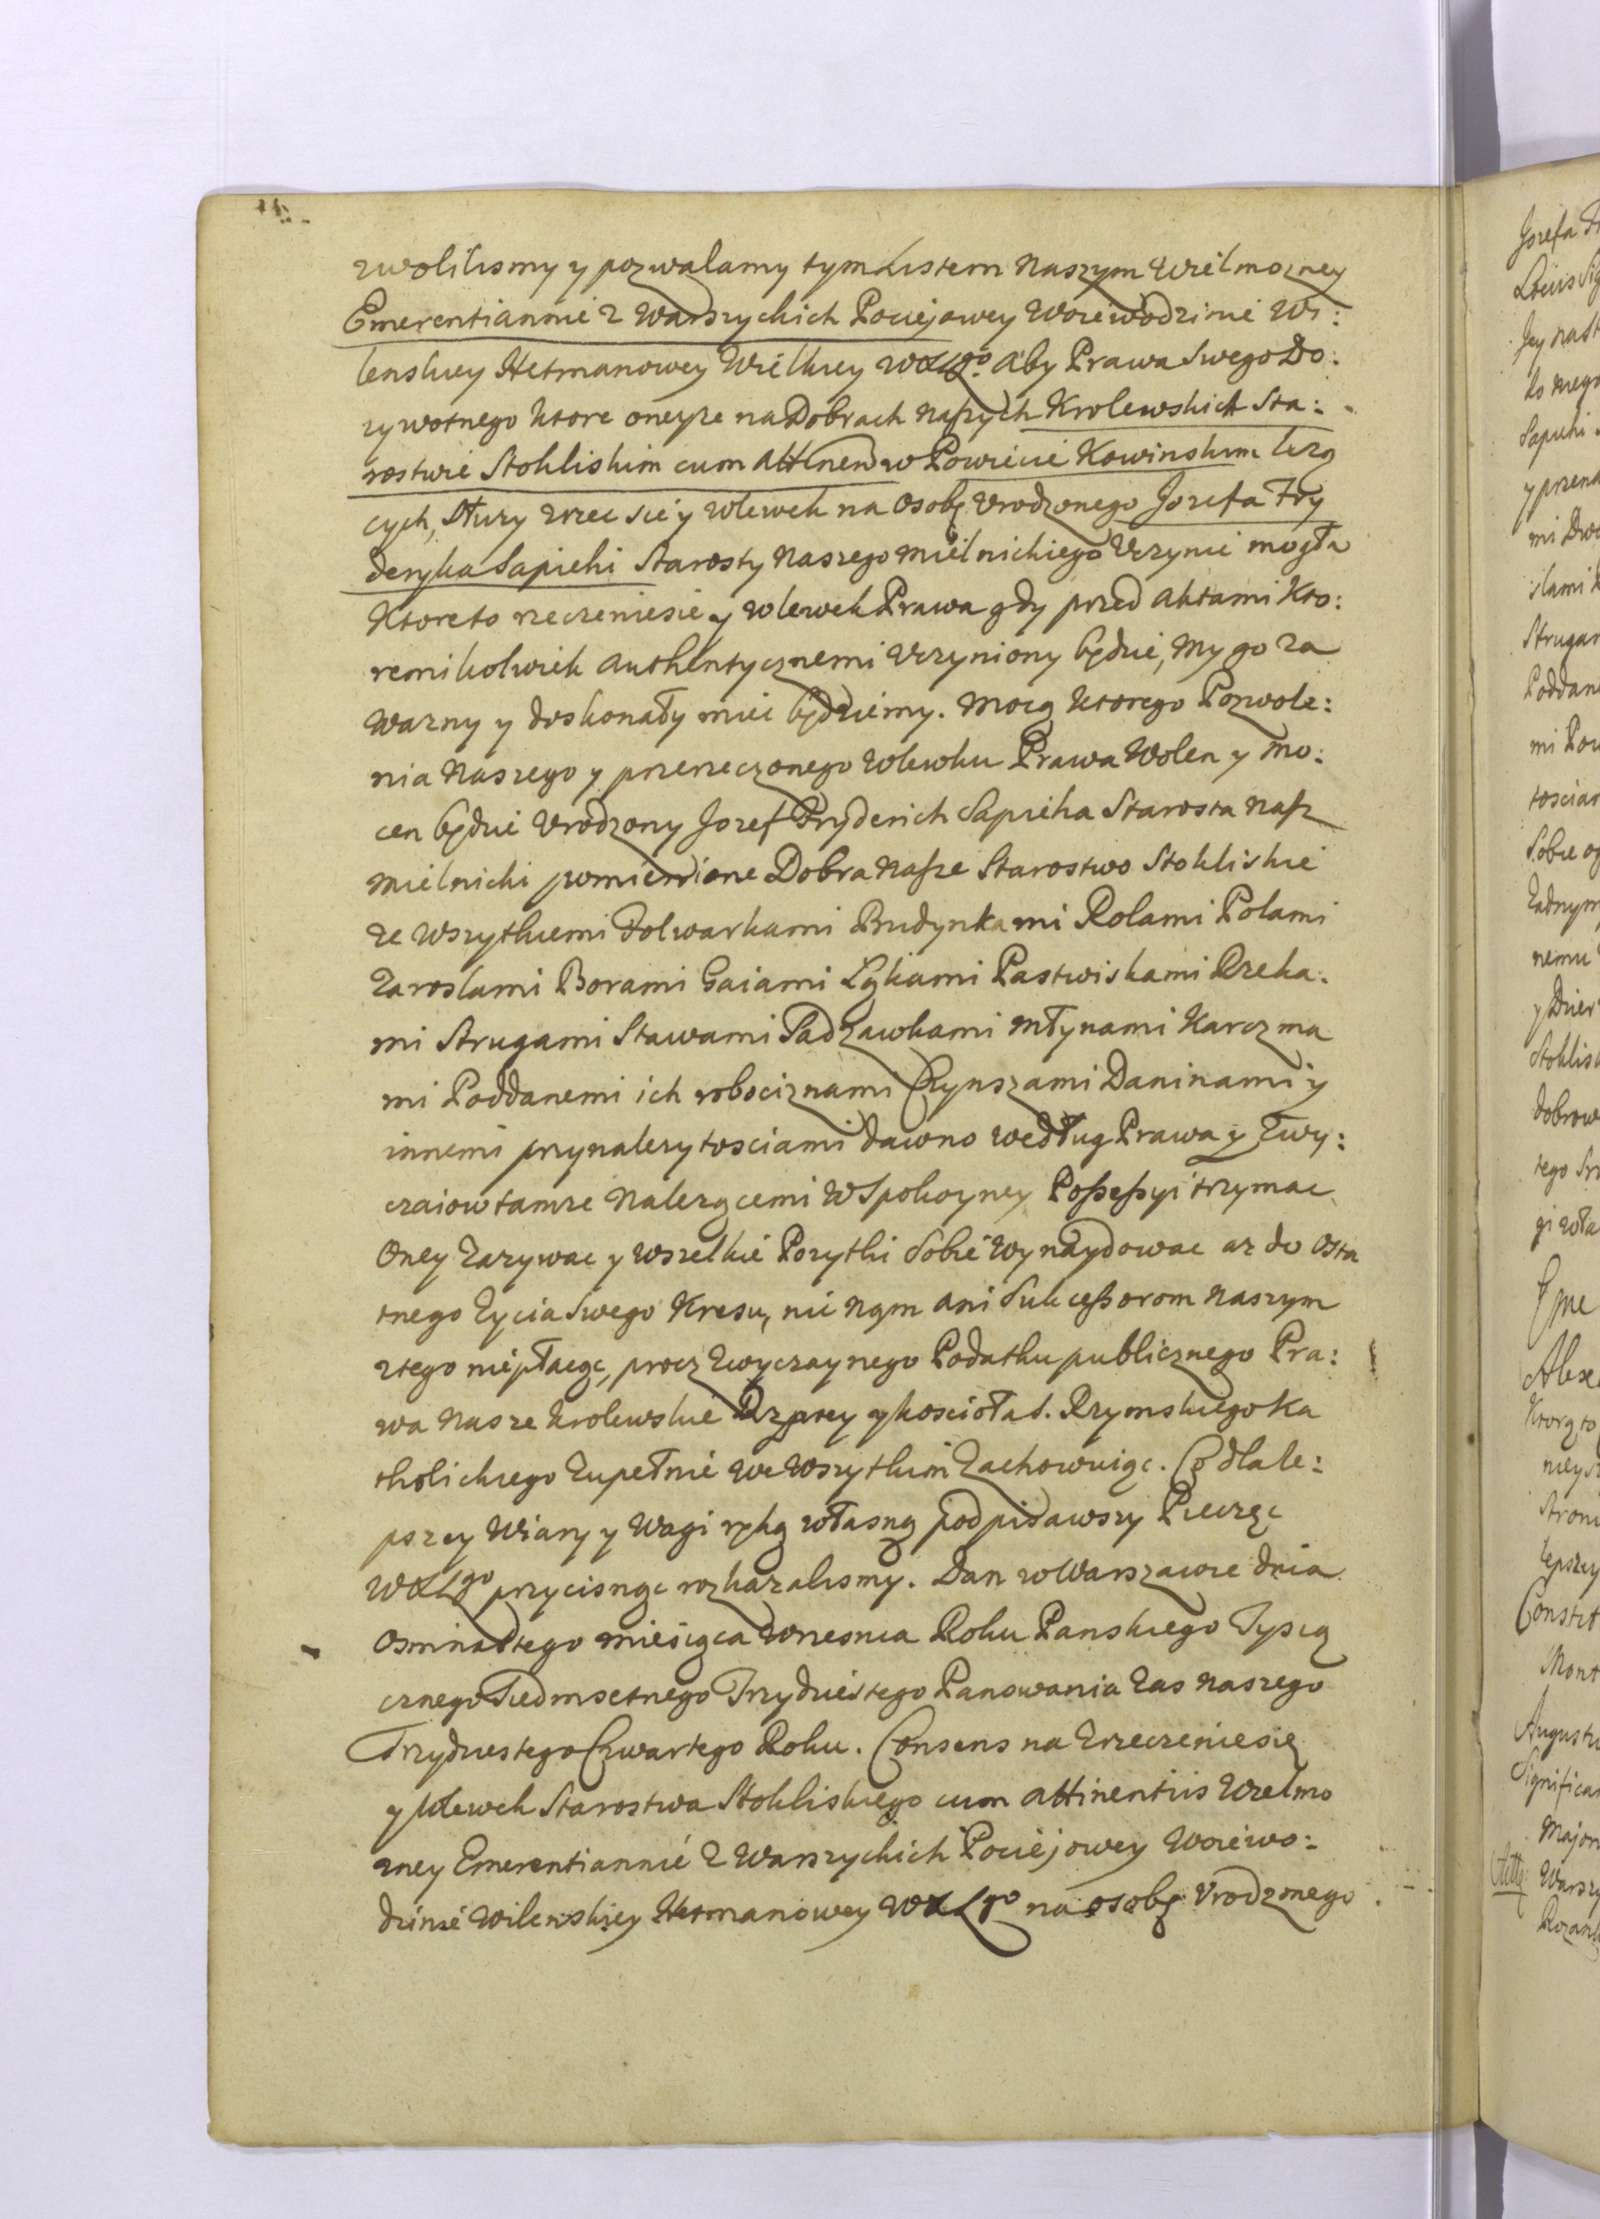 zwolilismy y pozwalamy tym Listem Naszym Wielmozney
Emerentiannie z Warszyckich Pociejowey Woiewodzinie Wi:
lenskiey Hetmanowey Wielkiey WXLgo. aby Prawa Swego Do:
zywotnego ktore oneyze na Dobrach Naszych Krolewskich Sta:
rostwie Stokliskim cum Attinen w Powiecie Kowinskim lezą
cych, Służy zrzec sie y wlewek na Osobę Urodzonego Jozefa Fry
deryka Sapiehi Starosty Naszego Mielnickiego Uczynic mogła
Ktore to rzeczeniesie y wlewek Prawa gdy przed Aktami Kto:
remikolwiek Authentycznemi Uczyniony będzie, My go za
Wazny y doskonały miec będziemy. Mocą ktorego Pozwole:
nia Naszego y przerzeczonego wlewku Prawa Wolen y Mo:
cen będzie Urodzony Jozef Fryderich Sapieha Starosta Nasz
Mielnicki pomienione Dobra Nasze Starostwo Stokliskie
ze Wszytkiemi Folwarkami Budynkami Rolami Polami
Zaroslami Borami Gaiami Łąkami Pastwiskami Rzeka:
mi Strugami Stawami Sadzawkami Młynami Karczma
mi Poddanemi ich robociznami Czynszami Daninami y
innemi przynalezytosciami dawno według Prawa y Zwy:
czaiow tamze Nalezącemi W Spokoyney Possessyi trzymac
Oney Zazywac y wszelkie Pozytki Sobie Wynaydowac az do Osta
tnego Zycia Swego Kresu, nic Nąm ani Sukcessorom Naszym
ztego niepłacąc, procz Zwyczaynego Podatku publicznego Pra:
wa Nasze krolewskie Rzptey y kosciołas. Rzymskiego Ka
tholickiego Zupełnie we Wszytkim Zachowuiąc. Co dla le:
pszey Wiary y Wagi ręką własną podpisawszy Pieczęc
WXLgo przycisnąc rozkazalismy. Dan w Warszawie dnia
Osminastego Miesiąca Wrzesnia Roku Panskiego Tysią
cznego Siedmsetnego Trzydziestego Panowania Zas Naszego
Trzydziestego Czwartego Roku. Consens na Zrzeczeniesię
y Wlewek Starostwa Stokliskiego cum attinentiis Wielmo
zney Emerentiannie Z Warszyckich Pociejowey Woiewo:
dzinie Wilenskiey Hetmanowey WXLgo na osobę Urodzonego